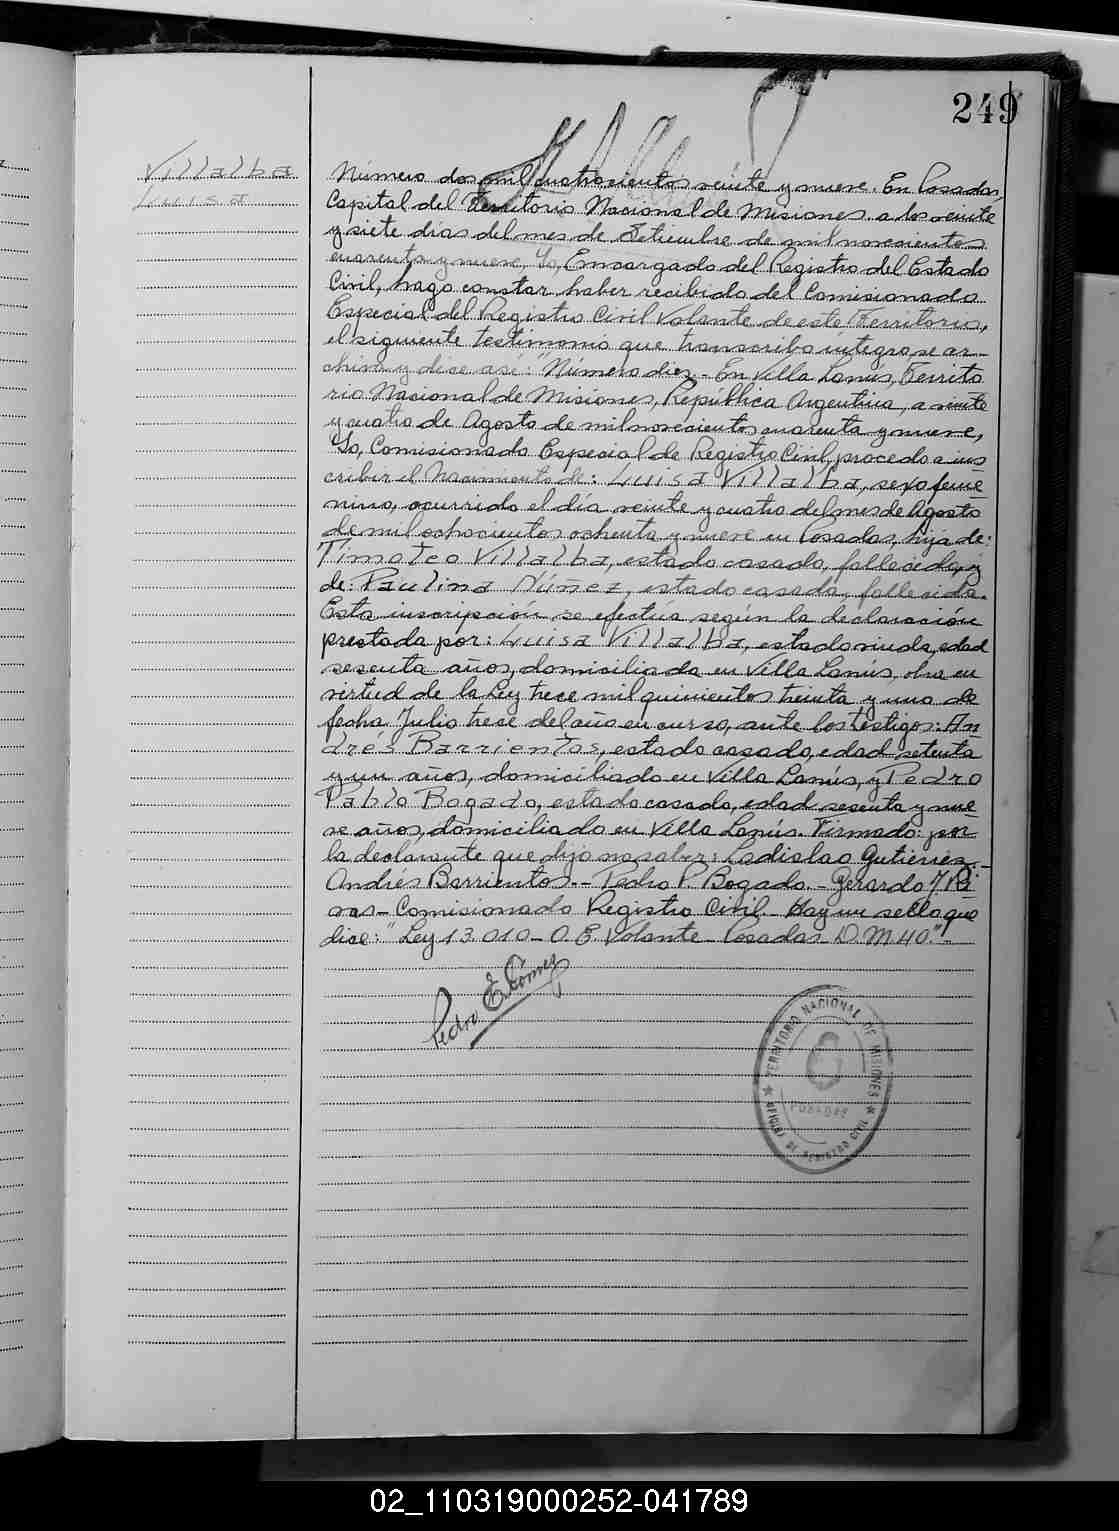 249
Villalba
Luisa
Número dos mil cuatrocientos veinte y nueve. En Posadas
Capital del Territorio Nacional de Misiones a los veinte
y siete dias del mes de Setiembre de mil novecientos
cuarenta y nueve, Yo, Encargado del Registro del Estado
Civil, hago constar haber recibido del Comisionado
Especial del Registro Civil Volante de este Territorio,
el siguiente testimonio que transcribo íntegro, se ar-
chiva y dice así: "Número diez - En Villa Lanus, Territo
rio Nacional de Misiones, República Argentina, a veinte
y cuatro de Agosto de mil novecientos cuarenta y nueve,
Yo, Comisionado Especial de Registro Civil, procedo a ins
cribir el Nacimiento de: Luisa Villalba, sexo feme
nino, ocurrido el día veinte y cuatro del mes de Agosto
de mil ochocientos ochenta y nueve en Posadas, hija de:
Timoteo Villalba, estado casado, fallecido, y
de: Paulina Núñez, estado casada, fallecida.
Esta inscripción se efectúa según la declaración
prestada por: Luisa Villalba, estado viuda, edad
sesenta años, domiciliada en Villa Lanús, obra en
virtud de la Ley trece mil quinientos treinta y uno de
fecha Julio trece del año en curso, ante los testigos: An
drés Barrientos, estado casado, edad setenta
y un años, domiciliado en Villa Lanús, y Pedro
Pablo Bogado, estado casado, edad sesenta y nue
ve años, domiciliado en Villa Lanús. Firmado: por
la declarante que dijo no saber: Ladislao Gutierrez.-
Andrés Barrientos.- Pedro P. Bogado.- Gerardo J. Ri
vas - Comisionado Registro Civil - Hay un sello que
dice: "Ley 13.010 - O. E. Volante - Posadas D. M 40."-
Pedro E Gomez
TERRITORIO NACIONAL DE MISIONES
POSADAS
OFICINA DE REGISTRO CIVIL
02_110319000252-041789